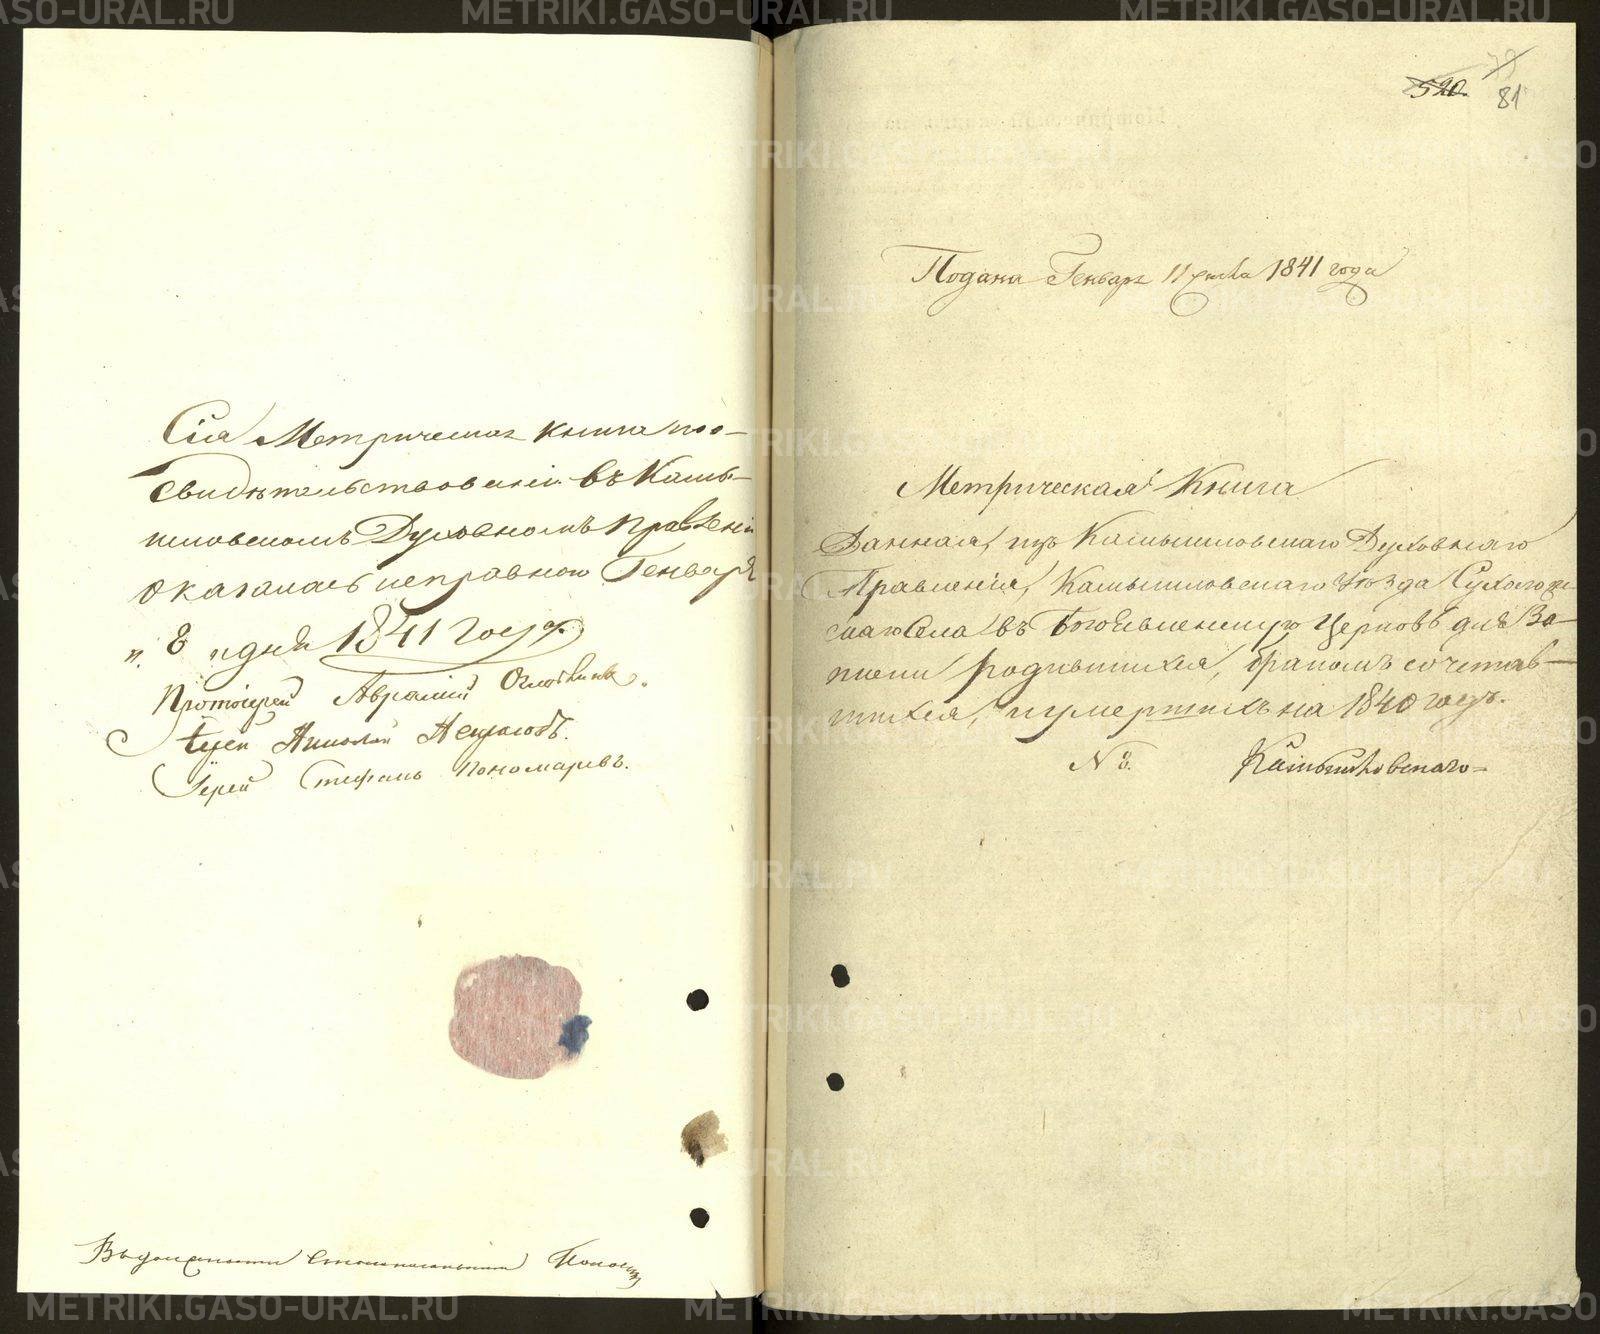 Сія Метрическая книга по
свидѣтельствованіи въ Камы-
шловскомъ Духовномъ Правленіи
оказалась исправною Генваря
„ 8 „ дня 1841 года.
Протоіерей Аврамій
Іерей Николай Некрасовъ.
Іерей Стефанъ Пономаревъ.
Въ должности
520.
79
81
Подана Генваря 11 числа 1841 года
Метрическая Книга
Данная, изъ Камышловскаго Духовнаго
Правленія, Камышловскаго уѣзда Сухоложс
скаго Села въ Богоявленскую Церковь для За-
писки родившихся, бракомъ сочетав-
шихся, и умершихъ на 1840 годъ.
№ 8. Камышловскаго-
METRIKI.GASO-URAL.RU